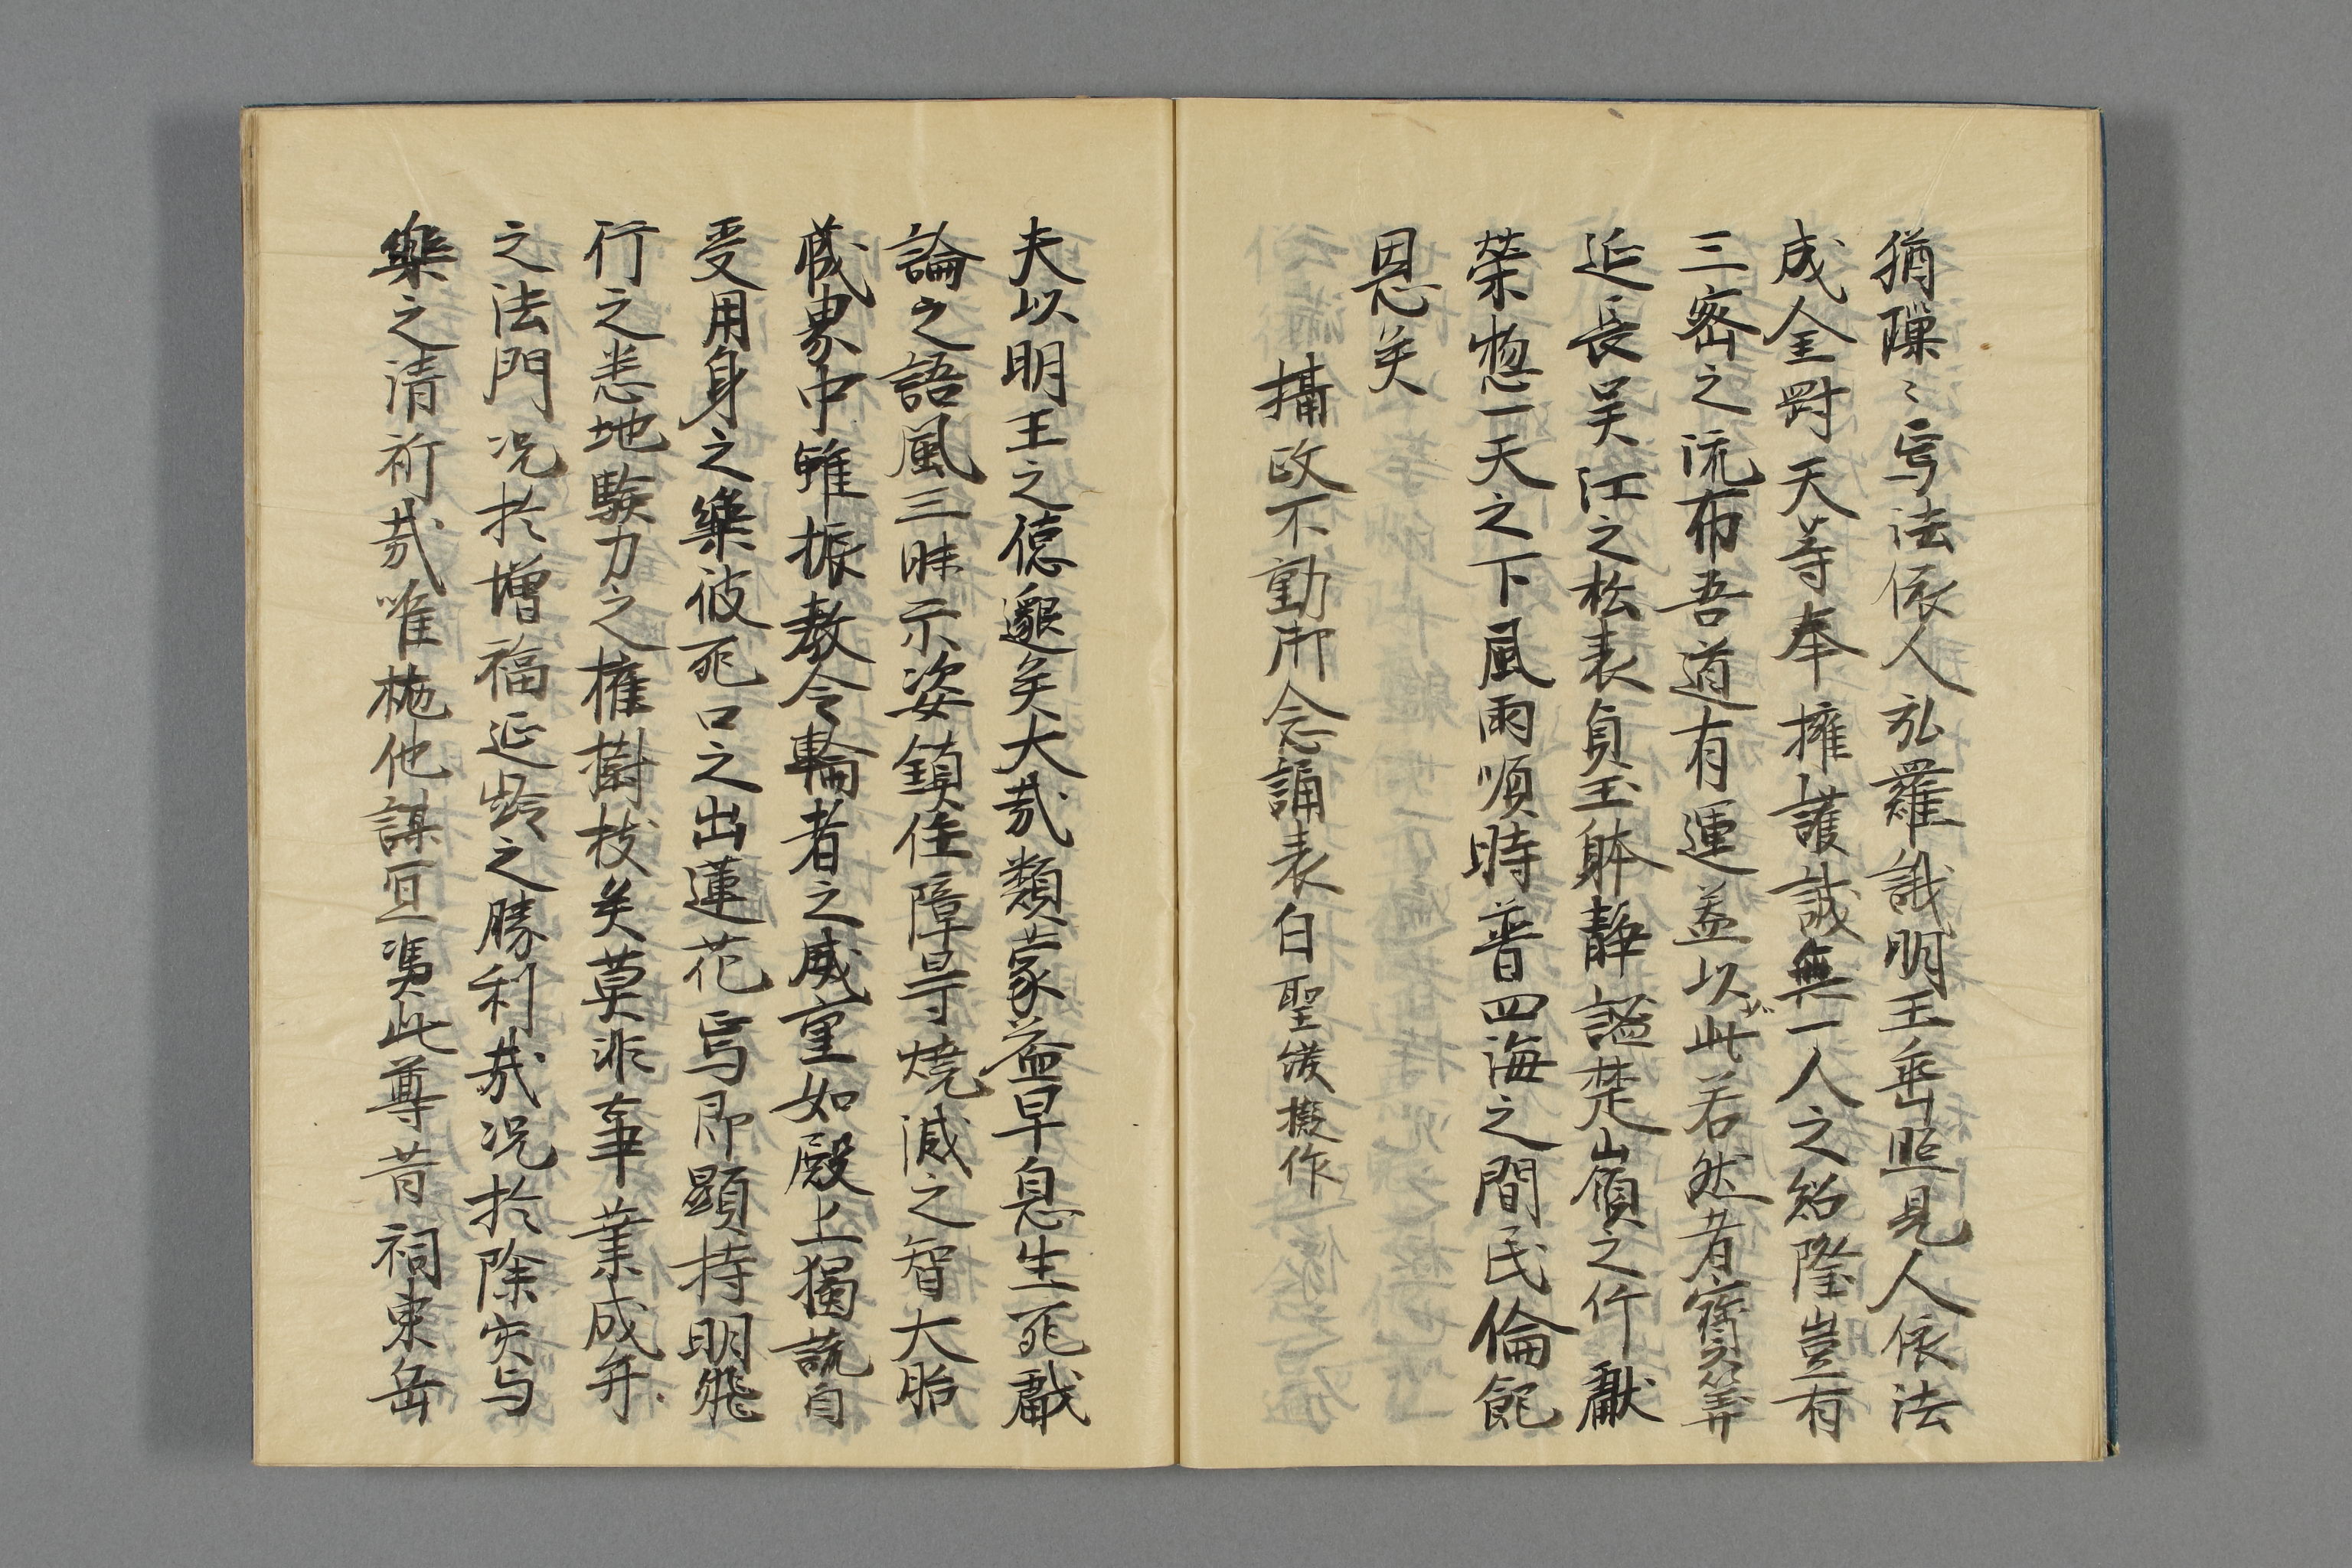 猶隟〻焉法依人弘羅誐明王垂照見人依法
成金剛天等奉擁護誠無一人之紹隆豈有
三密之流布吾道有運盖以此若然者寶筭
延長吴江之松表貞玉躰静謐楚山嶺之竹獻
榮惣一天之下風雨順時普四海之間民倫飽
恩矣
攝政不動御念誦表白聖 擬作
夫以明王之德邈矣大哉類蒙益早息生死戲
論之語風三昧示姿鎮住障㝵燒滅之智大胎
蔵界中雖振教令輪者之威重如殿上獨疏自
受用身之樂彼死口之出蓮花焉即顯持明飛
行之悉地驗力之擁樹枝矣莫非事業成弁
之法門况於增福延齡之勝利哉况於除灾与
樂之清祈哉唯施他謀亘馮此尊昔祠東岳